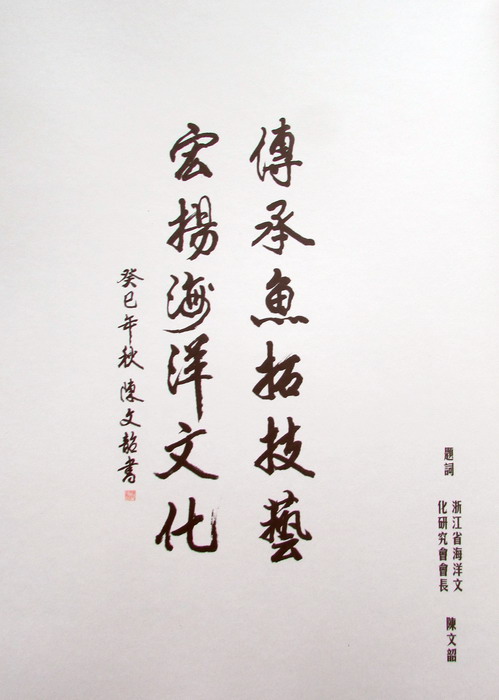 傳承魚拓技藝
宏揚海洋文化
癸巳年秋 陳文韶書
題詞
浙江省海洋文
化研究會會長
陳文韶